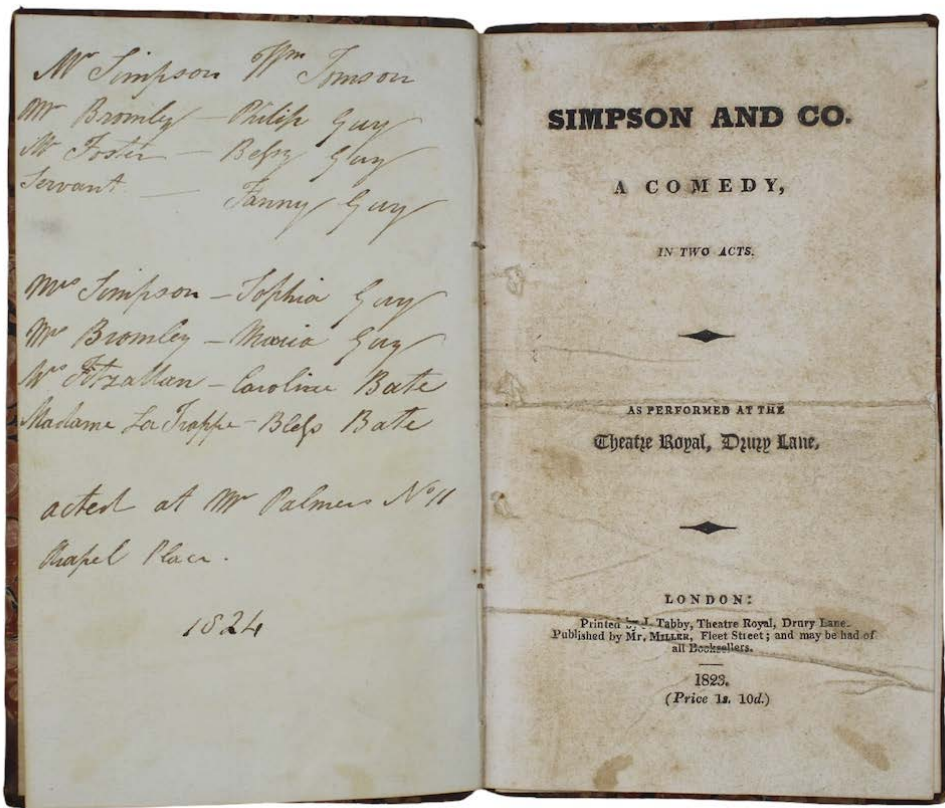 Mr Simpson Wm Tomson
Mr Bromley – Philip Guy
Mr Foster – Bessy Guy
Servant – Fanny Guy
Mrs Simpson – Sophia Guy
Mrs Bromley – Maria Guy
Mrs Fitzallan – Caroline Bate
Madame La Trappe – Bess Bate
acted at Mr Palmers No 11
Chapel Place.
1824
SIMPSON AND CO.
A COMEDY,
IN TWO ACTS.
AS PERFORMED AT THE
Theatre Royal, Drury Lane,
LONDON:
Printed by J. Tabby, Theatre Royal, Drury Lane.
Published by Mr. MILLER, Fleet Street; and may be had of
all Booksellers.
1823.
(Price 1s. 10d.)